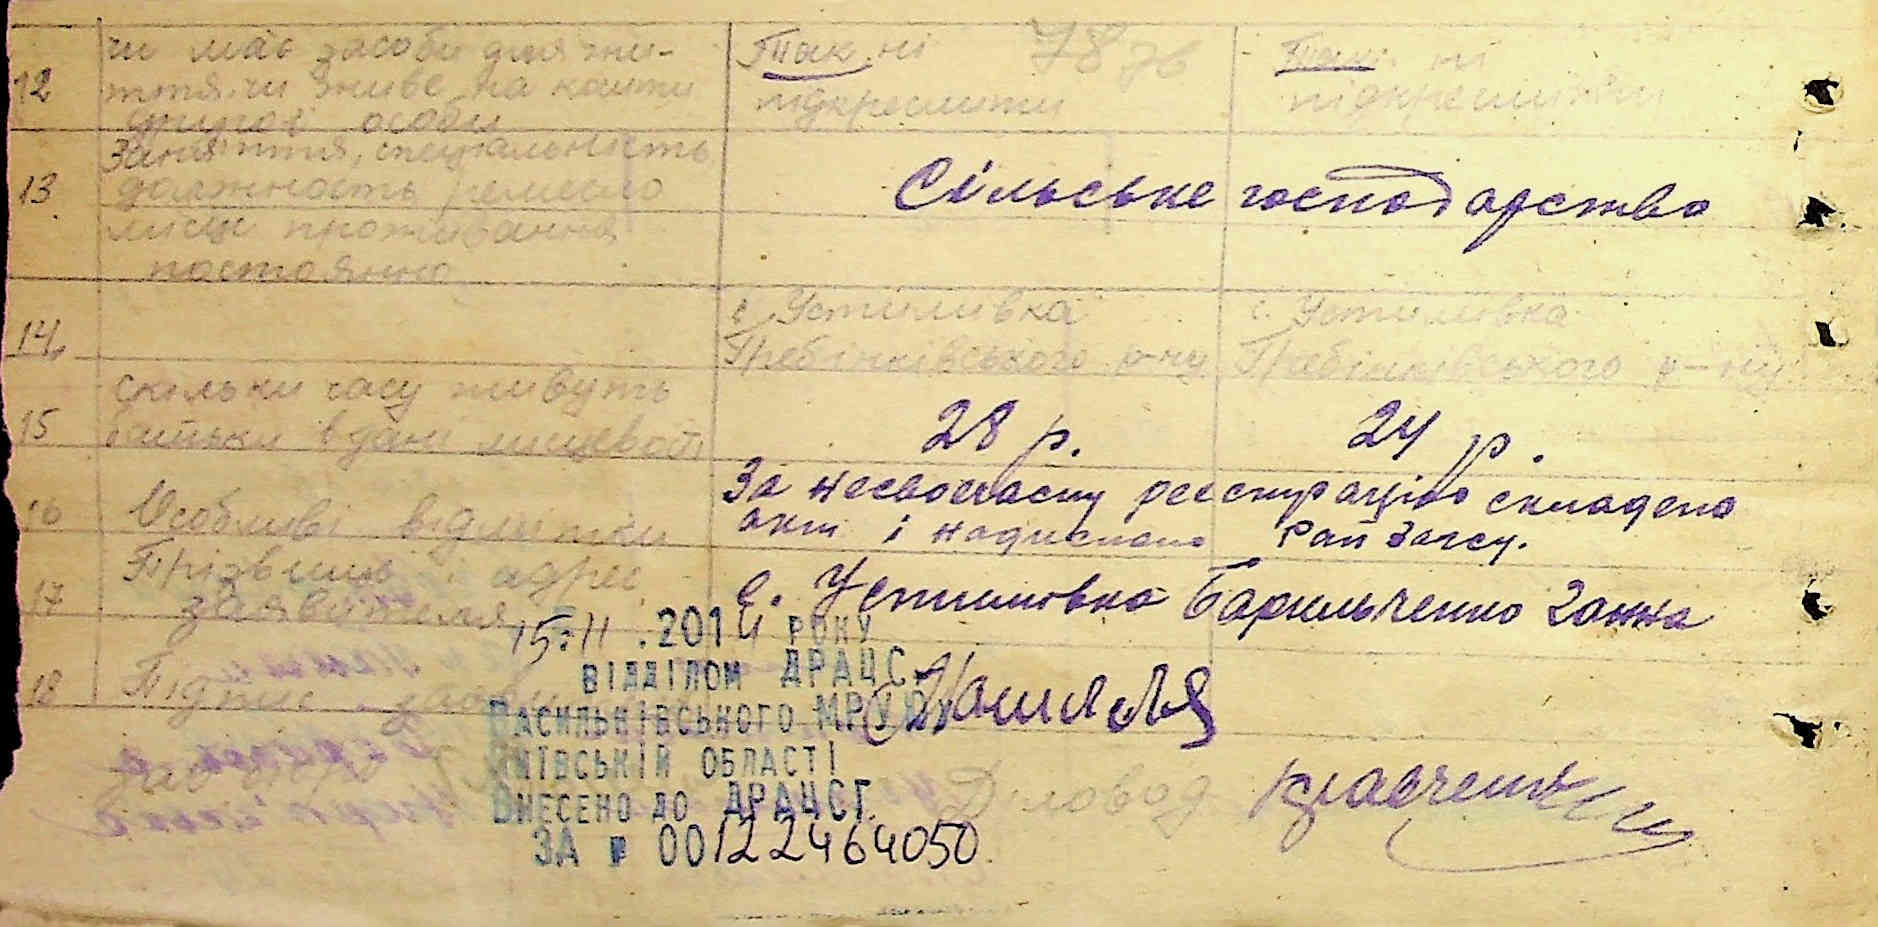 12 чи має засоби для жи- Так. ні 78 Так. ні
ття. чи живе на кошти підкреслити підкреслити
другої особи
13 Заняття, спеціальність
должность ремесло Сільське господарство
місце проживання
постоянно
14 с. Устимивка с. Устимивка
Гребінківського р-ну Гребінківського р-ну
скільки часу живуть
15 батьки в дані місцевості 28 р. 24 р.
За несвоєчасну реєстрацію складено
16 Особливі відмітки акт і надіслано Рай Загсу.
Прізвище і адрес
17 заявителя с. Устимовка Барильченко Ганна
15.11.2014 РОКУ
ВІДДІЛОМ ДРАЦС.
18 Підпис
ВАСИЛЬКІВСЬКОГО МРУЮ
КИЇВСЬКІЙ ОБЛАСТІ
Діловод Кравченко
ВНЕСЕНО ДО ДРАЦСГ.
ЗА № 00122464050.